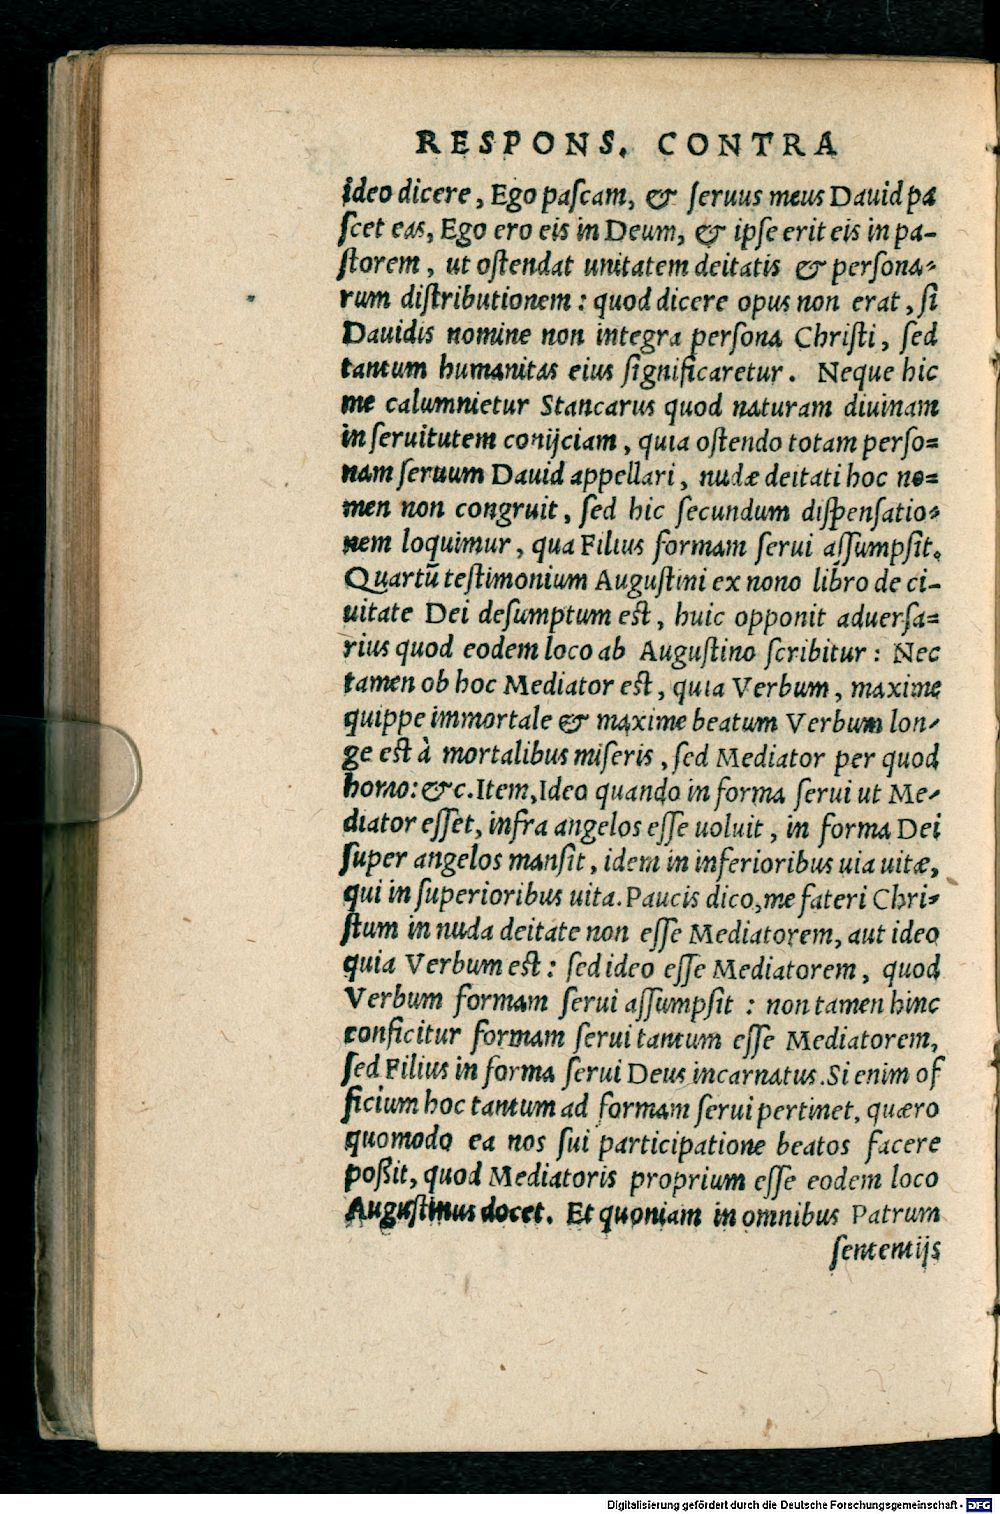 RESPONS. CONTRA
ideo dicere, Ego paſcam, & ſeruus meus Dauid pa
ſcet eas, Ego ero eis in Deum, & ipſe erit eis in pa-
ſtorem, ut oſtendat unitatem deitatis & perſona-
rum diſtributionem: quod dicere opus non erat, ſi
Dauidis nomine non integra perſona Chriſti, ſed
tantum humanitas eius ſignificaretur. Neque hic
me calumnietur Stancarus quod naturam diuinam
in ſeruitutem conijciam, quia oſtendo totam perſo=
nam ſeruum Dauid appellari, nudæ deitati hoc no=
men non congruit, ſed hic ſecundum diſpenſatio-
nem loquimur, qua Filius formam ſerui aſſumpſit.
Quartũ teſtimonium Auguſtini ex nono libro de ci-
uitate Dei deſumptum eſt, huic opponit aduerſa=
rius quod eodem loco ab Auguſtino ſcribitur: Nec
tamen ob hoc Mediator est, quia Verbum, maxime
quippe immortale & maxime beatum Verbum lon-
ge eſt à mortalibus miſeris, ſed Mediator per quod
homo: &c. Item, Ideo quando in forma ſerui ut Me-
diator eſſet, infra angelos eſſe uoluit, in forma Dei
ſuper angelos manſit, idem in inferioribus uia uitæ,
qui in ſuperioribus uita. Paucis dico, me fateri Chri-
ſtum in nuda deitate non eſſe Mediatorem, aut ideo
quia Verbum eſt: ſed ideo eſſe Mediatorem, quod
Verbum formam ſerui aſſumpſit: non tamen hinc
conficitur formam ſerui tantum eſſe Mediatorem,
ſed Filius in forma ſerui Deus incarnatus. Si enim of
ficium hoc tantum ad formam ſerui pertinet, quæro
quomodo ea nos ſui participatione beatos facere
poßit, quod Mediatoris proprium eſſe eodem loco
Auguſtinus docet. Et quoniam in omnibus Patrum
ſententijs
Digitalisierung gefördert durch die Deutsche Forschungsgemeinschaft - DFG